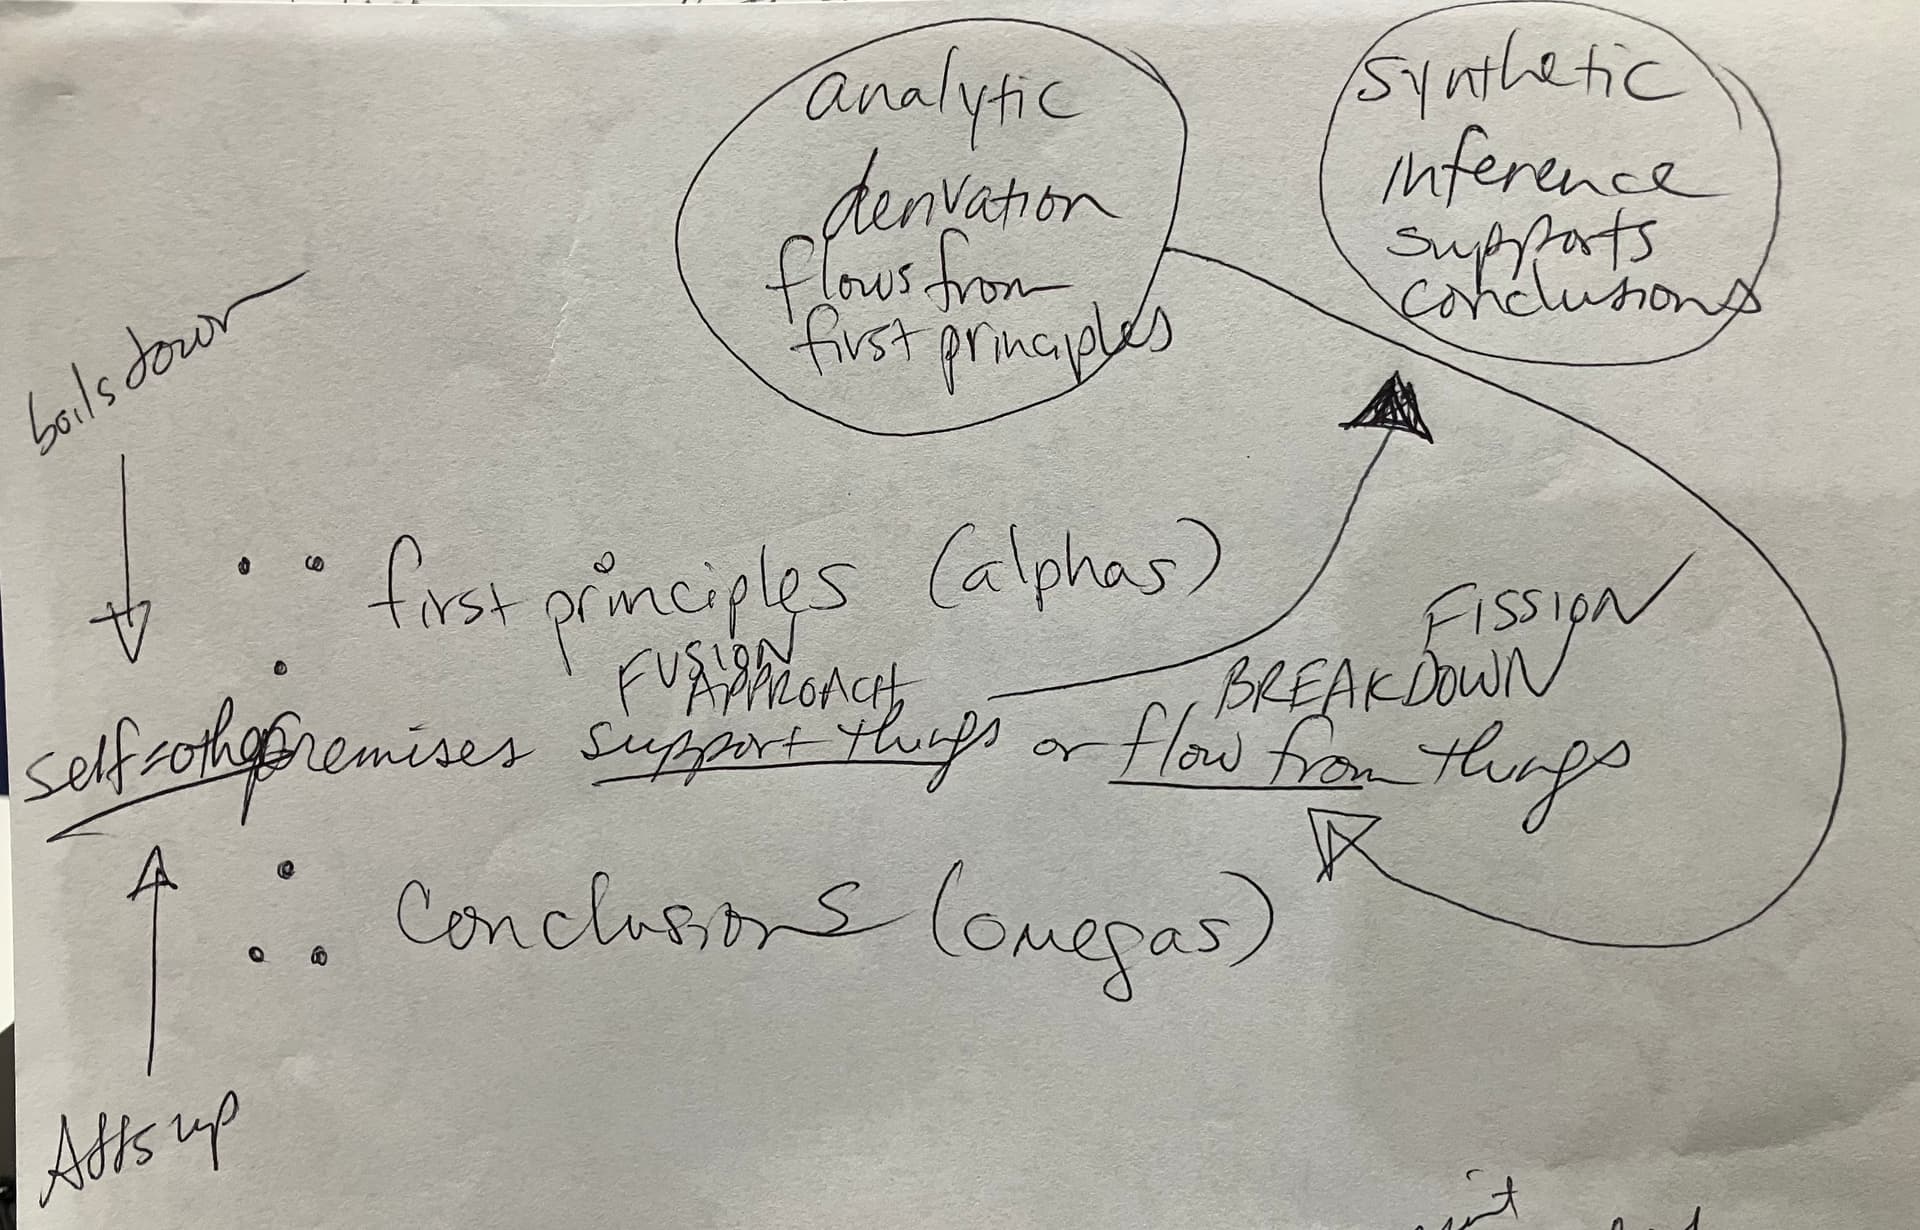 analytic
derivation
flows from
first principles
synthetic
inference
supports
conclusions
boils down
∵ first principles (alphas)
FUSION
APPROACH
FISSION
BREAKDOWN
self=other
premises support things or flow from things
∴ Conclusions (omegas)
Adds up